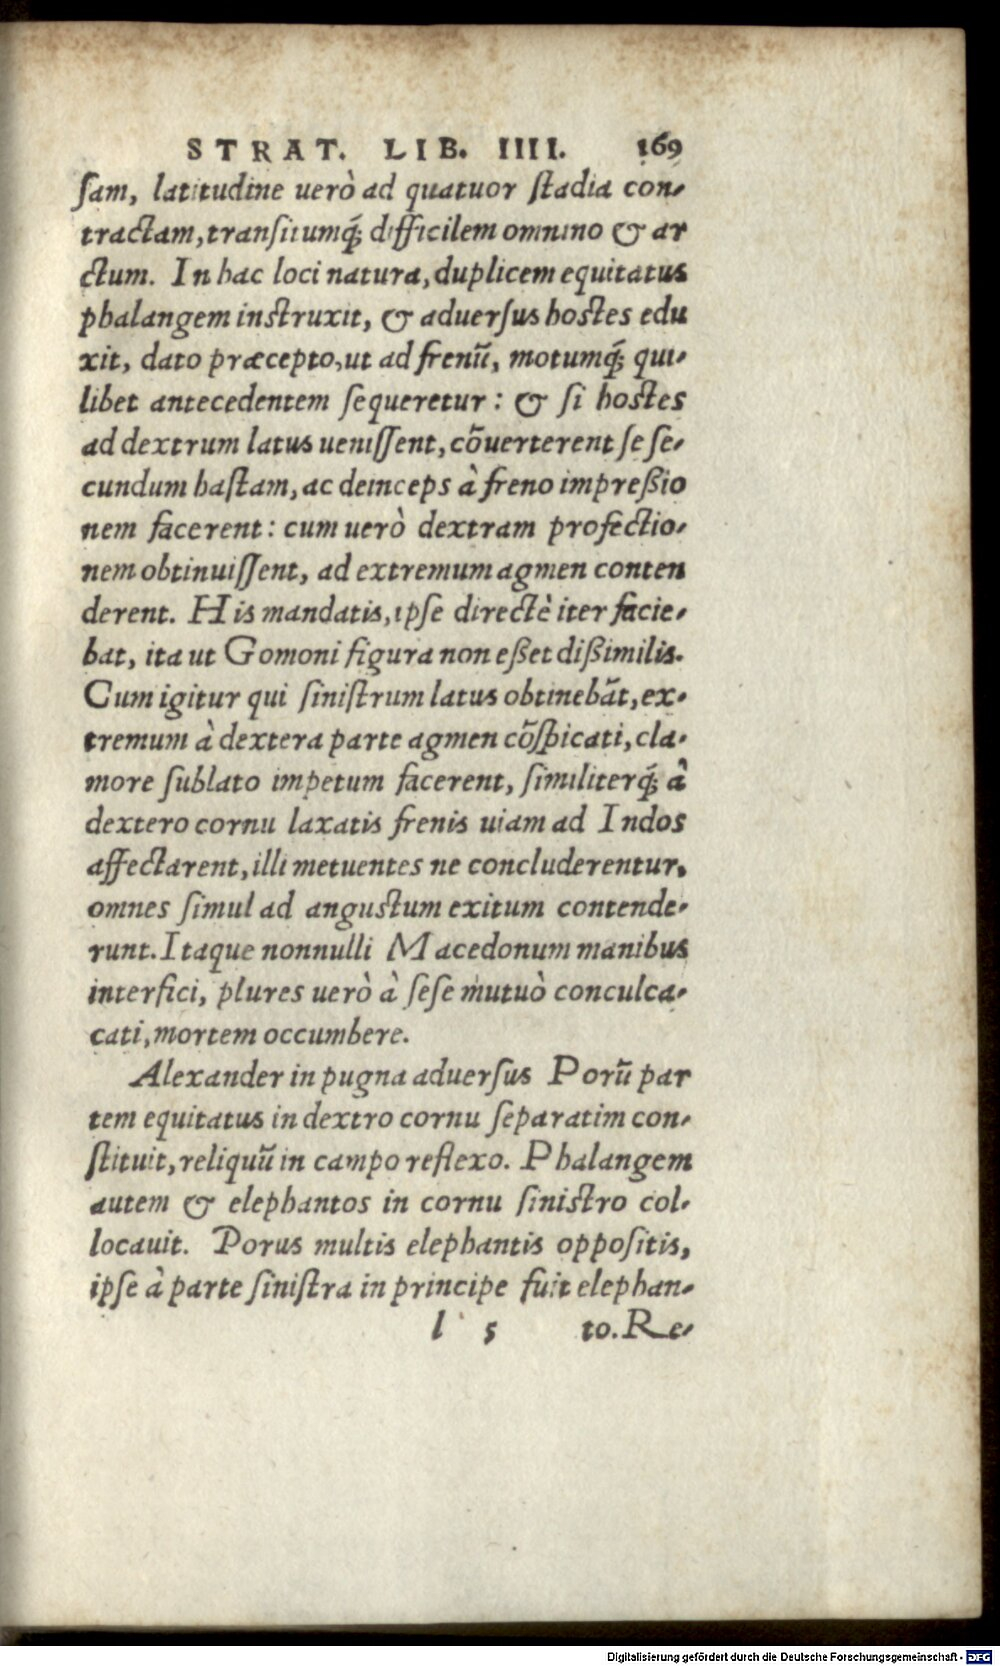 STRAT. LIB. IIII. 169
ſam, latitudine uerò ad quatuor ſtadia con-
tractam, tranſitumq́; difficilem omnino & ar
ctum. In hac loci natura, duplicem equitatus
phalangem inſtruxit, & aduerſus hoſtes edu
xit, dato præcepto, ut ad frenū, motumq́; qui-
libet antecedentem ſequeretur: & ſi hoſtes
ad dextrum latus ueniſſent, cōuerterent ſe ſe-
cundum haſtam, ac deinceps à freno impreßio
nem facerent: cum uerò dextram profectio-
nem obtinuiſſent, ad extremum agmen conten
derent. His mandatis, ipſe directè iter facie-
bat, ita ut Gomoni figura non eßet dißimilis.
Cum igitur qui ſiniſtrum latus obtinebāt, ex-
tremum à dextera parte agmen cōſpicati, cla-
more ſublato impetum facerent, ſimiliterq́; à
dextero cornu laxatis frenis uiam ad Indos
affectarent, illi metuentes ne concluderentur,
omnes ſimul ad anguſtum exitum contende-
runt. Itaque nonnulli Macedonum manibus
interfici, plures uerò à ſeſe mutuò conculca-
cati, mortem occumbere.
Alexander in pugna aduerſus Porū par
tem equitatus in dextro cornu ſeparatim con-
ſtituit, reliquū in campo reflexo. Phalangem
autem & elephantos in cornu ſiniſtro col-
locauit. Porus multis elephantis oppoſitis,
ipſe à parte ſiniſtra in principe fuit elephan-
l 5 to. Re-
Digitalisierung gefördert durch die Deutsche Forschungsgemeinschaft - DFG